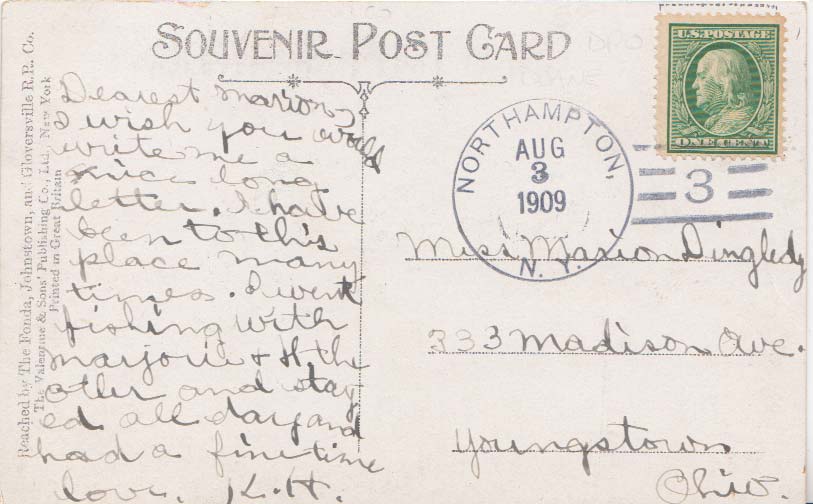 SOUVENIR POST CARD
Reached by The Fonda, Johnstown, and Gloversville R.R. Co.
The Valentine & Sons' Publishing Co., Ltd., New York
Printed in Great Britain
Dearest Marion,
I wish you would
write me a
nice long
letter. I have
been to this
place many
times. I went
fishing with
Marjorie + H the
other and stay
ed all day and
had a fine time
love. K.H.
U.S. POSTAGE
ONE CENT
NORTHAMPTON,
AUG
3
1909
N.Y.
3
Miss Marion Dingledy
333 Madison Ave.
Youngstown
Ohio.